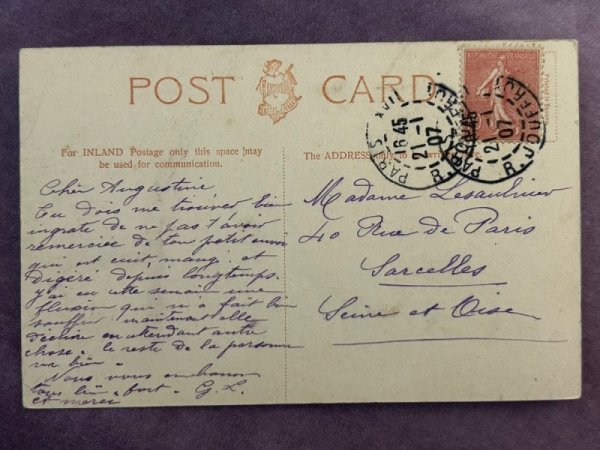 POST CARD
REPUBLIQUE FRANÇAISE
PARIS XVII
16 45
21 - 1
07
R. JOUFFROY
For INLAND Postage only this space may
be used for communication.
The ADDRESS only to
Chère Augustine
Tu dois me trouver bien
ingrate de ne pas t'avoir
remerciée de ton petit envoi
qui est cuit, mangé et
digéré depuis longtemps.
j'ai eu cette semaine une
fluxion qui m'a fait bien
souffrir maintenant elle
décline en attendant autre
chose. le reste de la personne
va bien
Nous vous embrassons
tous bien fort. G. L.
et merci
Madame Lesaulnier
40 Rue de Paris
Sarcelles
Seine et Oise